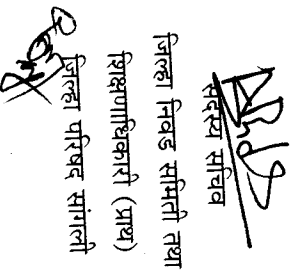 सदस्य सचिव
जिल्हा निवड समिती तथा
शिक्षणाधिकारी (प्राथ)
जिल्हा परिषद सांगली